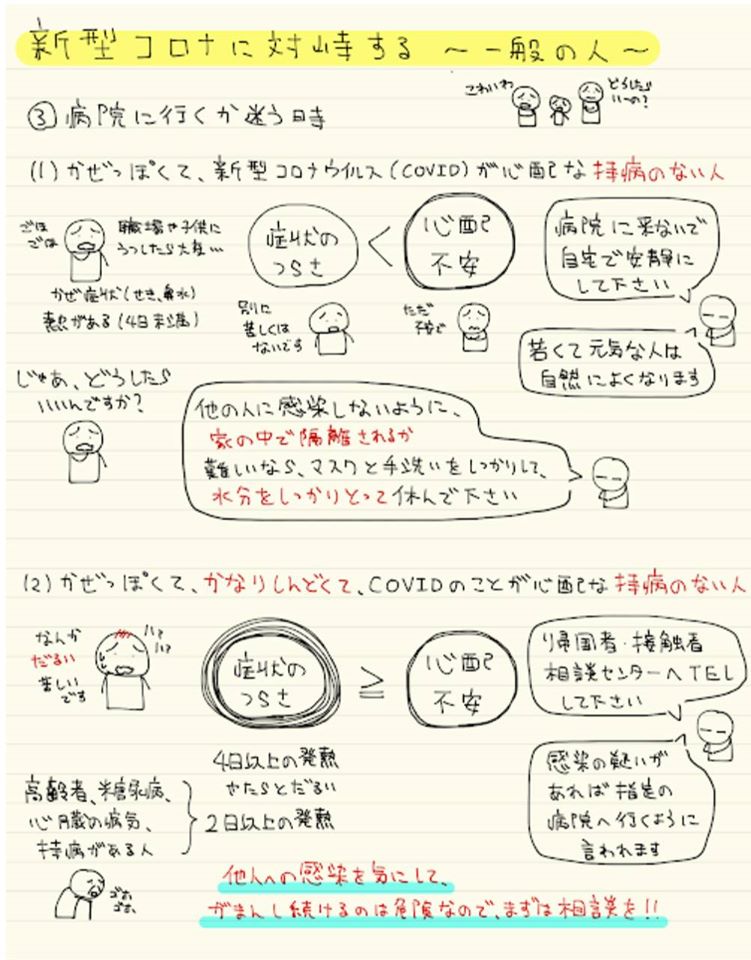 新型コロナに対峙する ～一般の人～
③病院に行くか迷う時
こわいわ
どうしたら
いーの?
(1)かぜっぽくて、新型コロナウイルス(COVID)が心配な持病のない人
ごほ
ごほ
職場や子供に
うつしたら大変…
かぜ症状(せき、鼻水)
熱がある(4日未満)
症状の
つらさ
<
心配
不安
別に
苦しくは
ないです
ただ
不安で
病院に来ないで
自宅で安静に
して下さい
若くて元気な人は
自然によくなります
じゃあ、どうしたら
いいんですか?
他の人に感染しないように、
家の中で隔離されるか
難しいなら、マスクと手洗いをしっかりして、
水分をしっかりとって休んで下さい
(2)かぜっぽくて、かなりしんどくて、COVIDのことが心配な持病のない人
なんか
だるい
苦しい
です
症状の
つらさ
≧
心配
不安
帰国者・接触者
相談センターへTEL
して下さい
感染の疑いが
あれば指定の
病院へ行くように
言われます
4日以上の発熱
さらっとだるい
高齢者、糖尿病、
心臓の病気、
持病がある人
2日以上の発熱
他人への感染を気にして、
がまんし続けるのは危険なので、まずは相談を!!